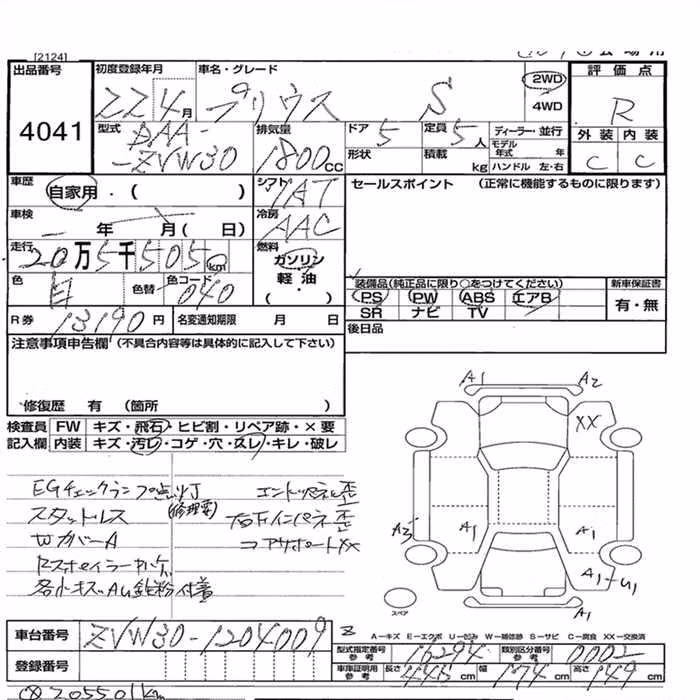 [2124]
出品番号
4041
初度登録年月
22 4月
車名・グレード
プリウス S
2WD
4WD
評価点
R
外装 内装
C C
型式
DAA-
-ZVW30
排気量
1800cc
ドア 5
形状
定員 5人
積載 kg
ディーラー・並行
モデル年式 年
ハンドル 左・右
車歴
自家用・( )
シフト
IAT
セールスポイント (正常に機能するものに限ります)
車検
年 月( 日)
冷房
AAC
走行
20万5千505km
燃料
ガソリン
軽油
( ・ )
色
色替
色コード
040
装備品(純正品に限り○をつけてください)
新車保証書
PS PW ABS エアB
SR ナビ TV
有・無
R券 13190円
名変通知期限 月 日
後日品
注意事項申告欄 (不具合内容等は具体的に記入して下さい)
修復歴 有 (箇所 )
検査員 FW キズ・飛石・ヒビ割・リペア跡・×要
記入欄 内装 キズ・汚レ・コゲ・穴・スレ・キレ・破レ
EGチェックランプ点灯
(修理要)
スタッドレス
WカバーA
各小キズAU鉄粉付着
エンドパネル歪
右Fインパネ歪
コアサポートXX
A1 A2
XX
A3 A1 A1
A1-U1
A1
スペア
A-キズ E-エクボ U-凹み W-補修跡 S-サビ C-腐食 XX-交換済
車台番号
ZVW30-1204009
登録番号
型式指定番号 参考 16294
類別区分番号 参考 0002
車庫証明用 参考 長さ 445cm 幅 174cm 高さ 149cm
205501km